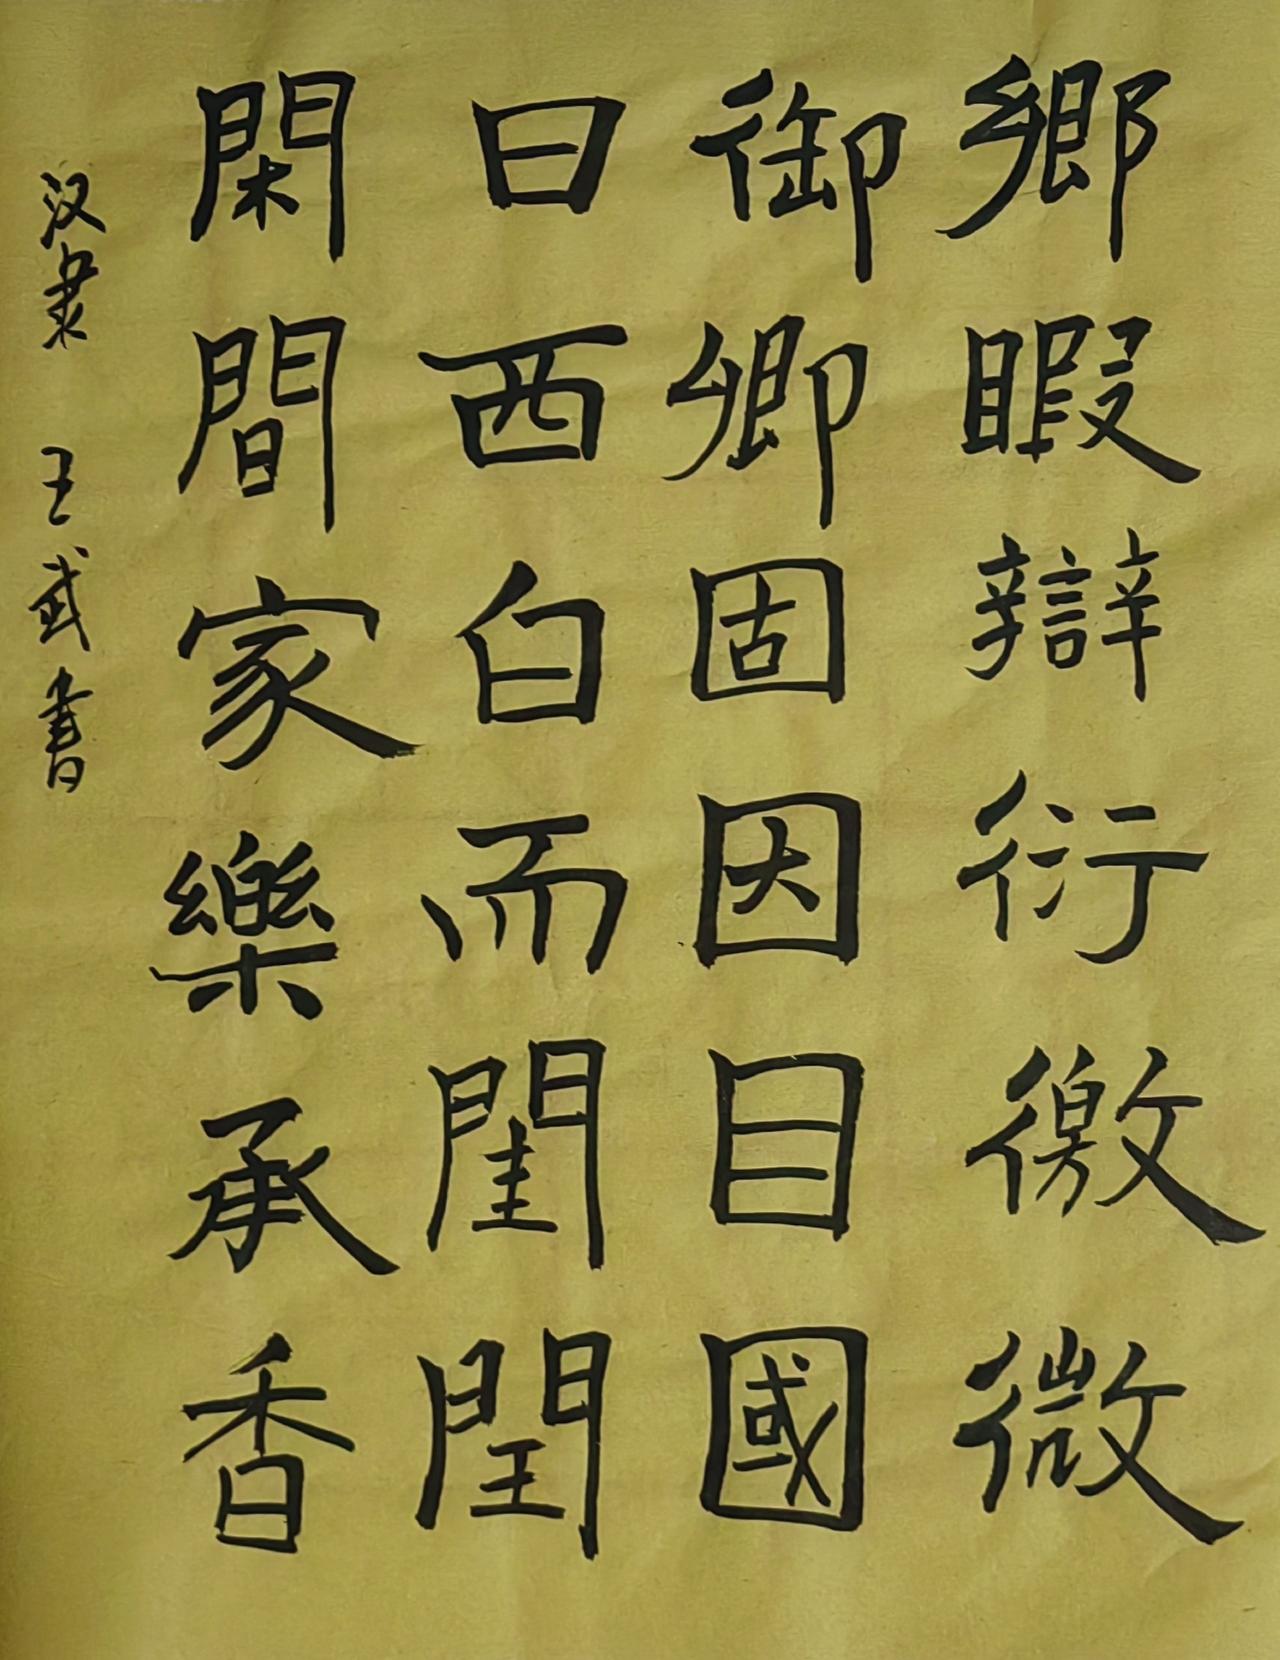 鄉睱辯衍徼微
御卿固因目國
曰西白而閨閏
閑間家樂承香
汉隶 王武書